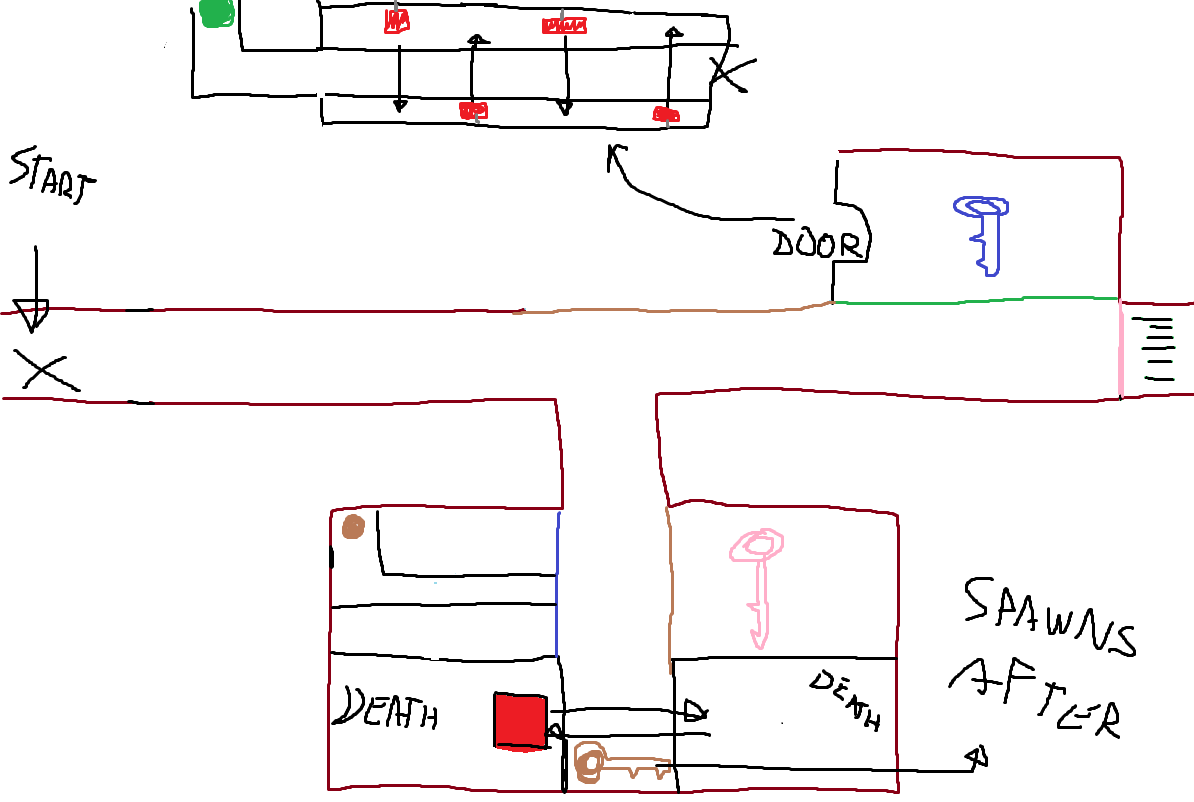 START
DOOR
DEATH
DEATH
SPAWNS
AFTER